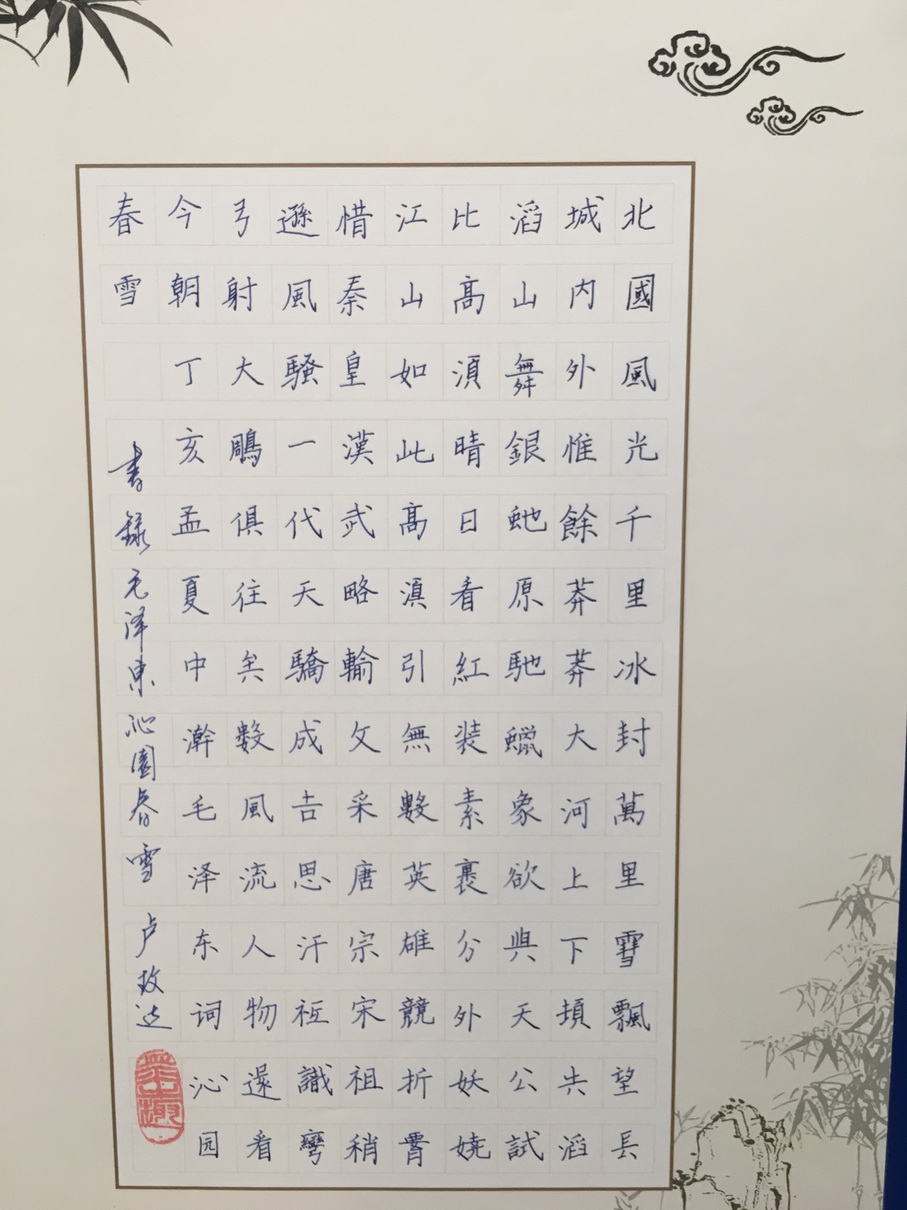 北國風光千里冰封萬里雪飄望長
城内外惟餘莽莽大河上下頓失滔
滔山舞銀虵原馳蠟象欲與天公試
比高須晴日看紅装素裹分外妖娆
江山如此高滇引無數英雄競折
惜秦皇漢武略輸文采唐宗宋祖稍
遜風騷一代天驕成吉思汗祗識彎
弓射大鵰俱往矣数風流人物還看
今朝丁亥孟夏中澣毛泽东词沁园
春雪
書録毛泽東沁園春雪 卢玫